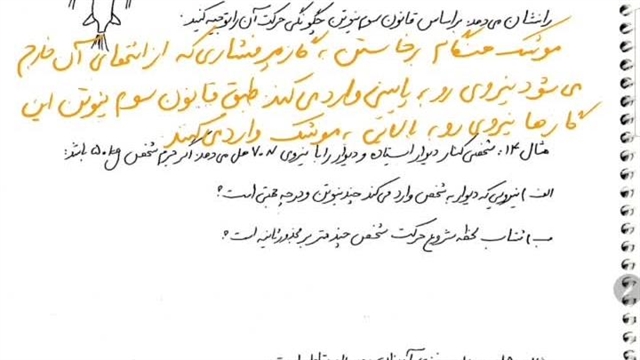 را نشان می‌دهد. براساس قانون سوم نیوتن چگونگی حرکت آن را توجیه کنید.
موشک هنگام برخاستن به گاز پرفشاری که از انتهای آن خارج
می‌شود نیروی رو به پایینی وارد می‌کند. طبق قانون سوم نیوتن این
گازها نیروی رو به بالایی به موشک وارد می‌کنند
مثال ۱۴: شخصی کنار دیوار ایستاده و دیوار را با نیروی ۷۰N هل می‌دهد. اگر جرم شخص ۵۰kg باشد:
الف) نیرویی که دیوار به شخص وارد می‌کند چند نیوتن و در چه جهتی است؟
ب) شتاب لحظه شروع حرکت شخص چند متر بر مجذور ثانیه است؟